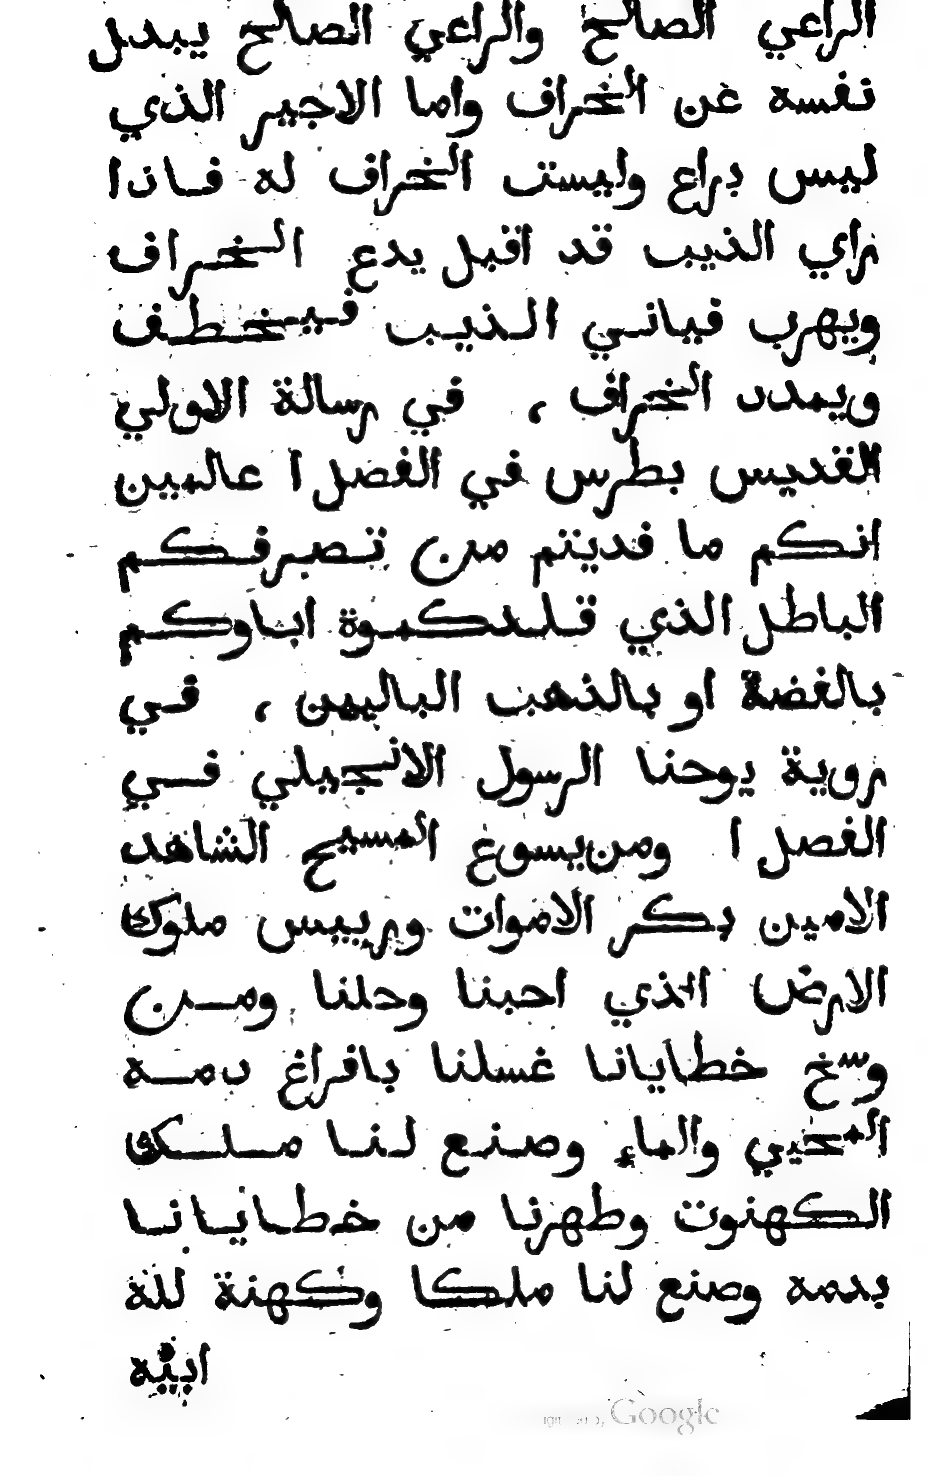 الراعي الصالح والراعي الصالح يبدل
نفسه عن الخراف واما الاجير الذي
ليس براع وليست الخراف له فاذا
راي الذيب قد اقبل يدع الخراف
ويهرب فياتي الذيب فيخطف
ويبدد الخراف ، في رسالة الاولي
القديس بطرس في الفصل ا عالمين
انكم ما فديتم من تصرفكم
الباطل الذي اباوكم
بالفضة او بالذهب الباليين ، في
روية يوحنا الرسول الانجيلي في
الفصل ا ومن يسوع المسيح الشاهد
الامين بكر الاموات ورييس ملوك
الارض الذي احبنا وحلنا ومن
وسخ خطايانا غسلنا بافراغ دمه
المحيي والماء وصنع لنا ملك
الكهنوت وطهرنا من خطايانا
بدمه وصنع لنا ملكا وكهنة لله
ابيه
Google